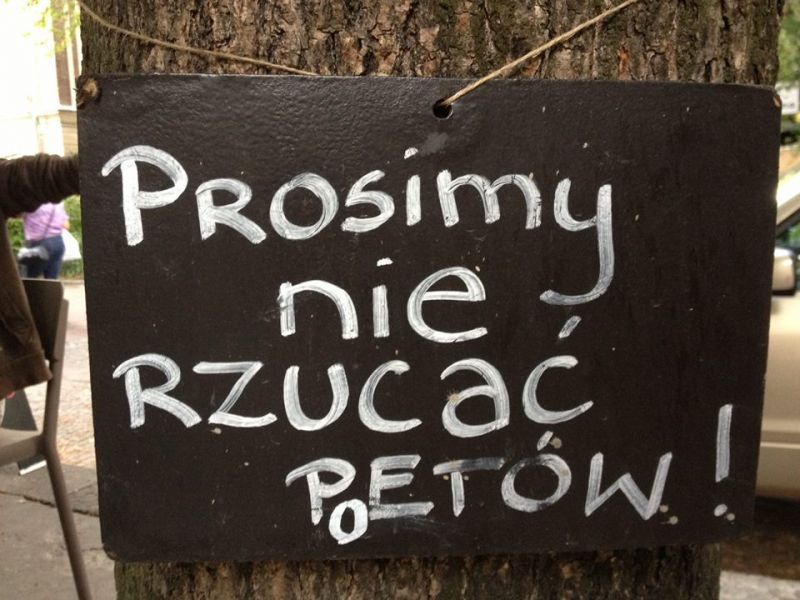 PROSimy
nie
RZUCAĆ
POETÓW!